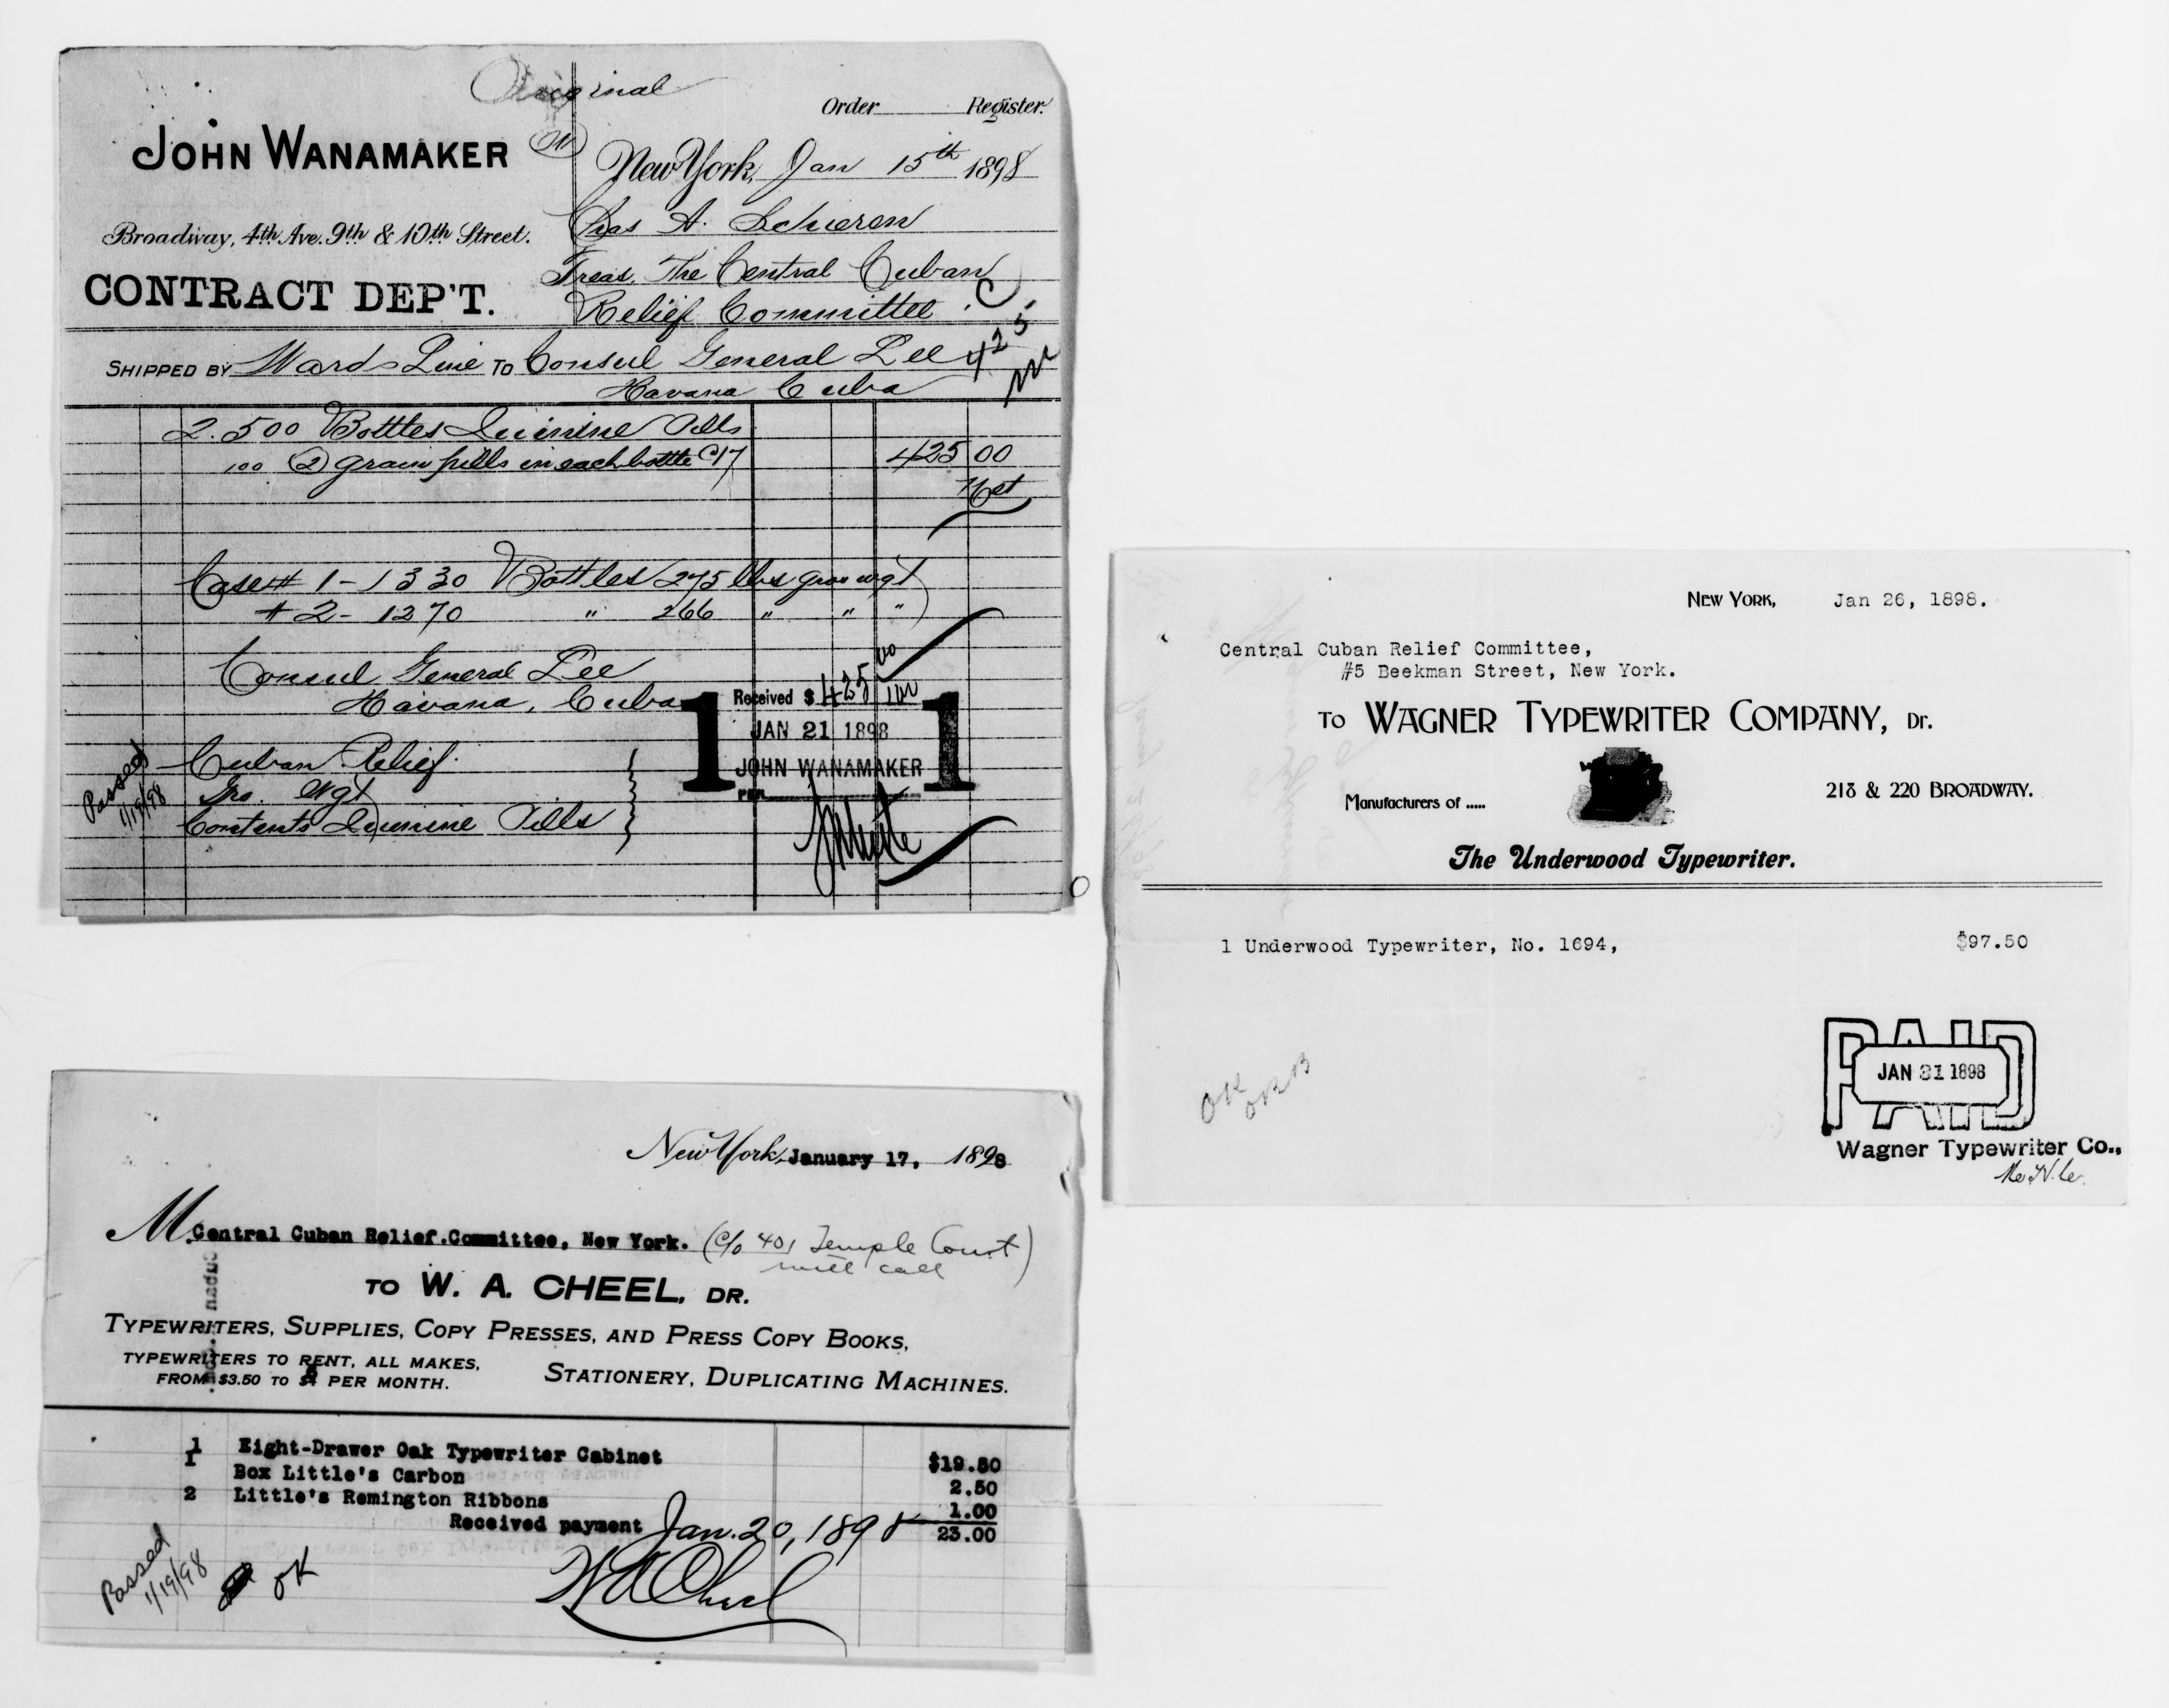 Original
Order Register.
JOHN WANAMAKER
New York, Jan 15th 1898
Broadway, 4th Ave. 9th & 10th Street.
Chas A. Schieren
Treas. The Central Cuban
CONTRACT DEP'T.
Relief Committee.
425
SHIPPED BY Wards Line TO Consul General Lee
Havana Cuba
2.500 Botttles Quinine Pills
100 (2) grain pills in each bottle @17 425 00
Net
Case # 1 - 1330 Bottles 275 lbs gross wgt
# 2 - 1270 " 266 " " "
Consul General Lee
Havana, Cuba
1 Received $ 425 00/100 1
JAN 21 1898
JOHN WANAMAKER
PER
Cuban Relief.
Gro. Wgt
Contents Quinine Pills
Passed
1/19/98
NEW YORK, Jan 26, 1898.
Central Cuban Relief Committee,
#5 Beekman Street, New York.
TO WAGNER TYPEWRITER COMPANY, Dr.
Manufacturers of ..... 218 & 220 BROADWAY.
The Underwood Typewriter.
1 Underwood Typewriter, No. 1694, $97.50
OK
PAID
JAN 31 1898
Wagner Typewriter Co.,
New York, January 17, 1898
M Central Cuban Relief.Committee, New York. (c/o 401 Temple Court
will call)
TO W. A. CHEEL, DR.
TYPEWRITERS, SUPPLIES, COPY PRESSES, AND PRESS COPY BOOKS,
TYPEWRITERS TO RENT, ALL MAKES,
FROM $3.50 TO PER MONTH.
STATIONERY, DUPLICATING MACHINES.
1 Eight-Drawer Oak Typewriter Cabinet $19.50
1 Box Little's Carbon 2.50
2 Little's Remington Ribbons 1.00
Received payment Jan. 20, 1898 23.00
W A Cheel
Passed
1/19/98
OK